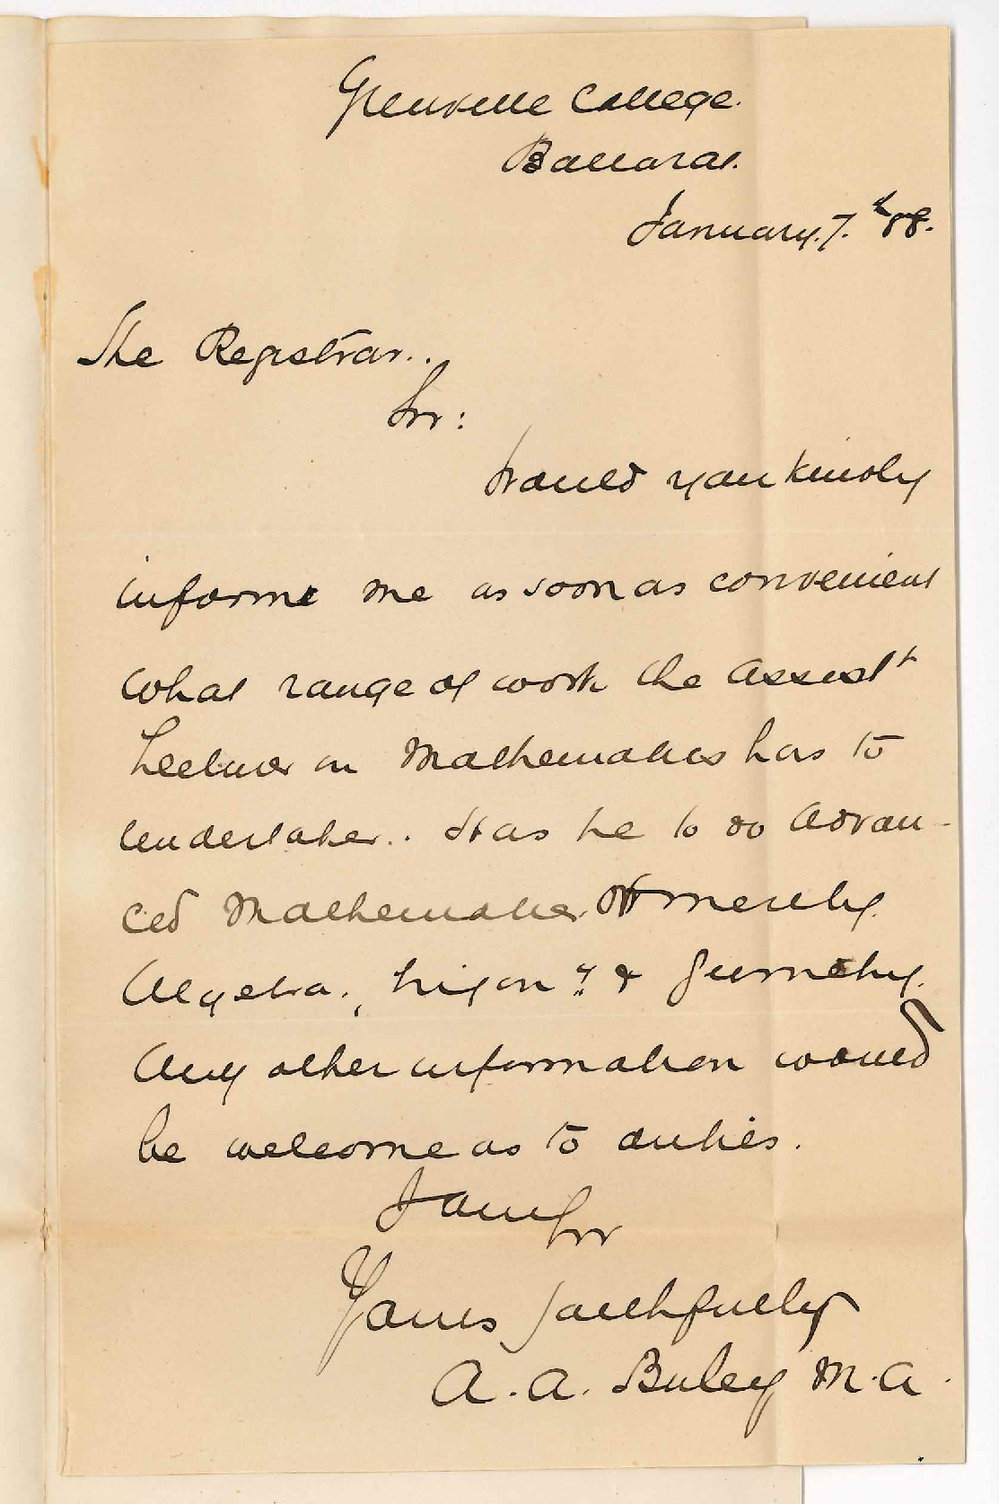 Grenville College.
Ballarat.
January. 7.th 88.
The Registrar..
Sir:
Would you kindly
inform me as soon as convenient
what range of work the Assistt
Lecturer in Mathematics has to
undertake.. Has he to do Advan-
ced Mathematics. Or merely.
Algebra., trigony. & Geometry.
Any other information would
be welcome as to duties.
I am Sir
Yours faithfully
A. A. Buley M.A.